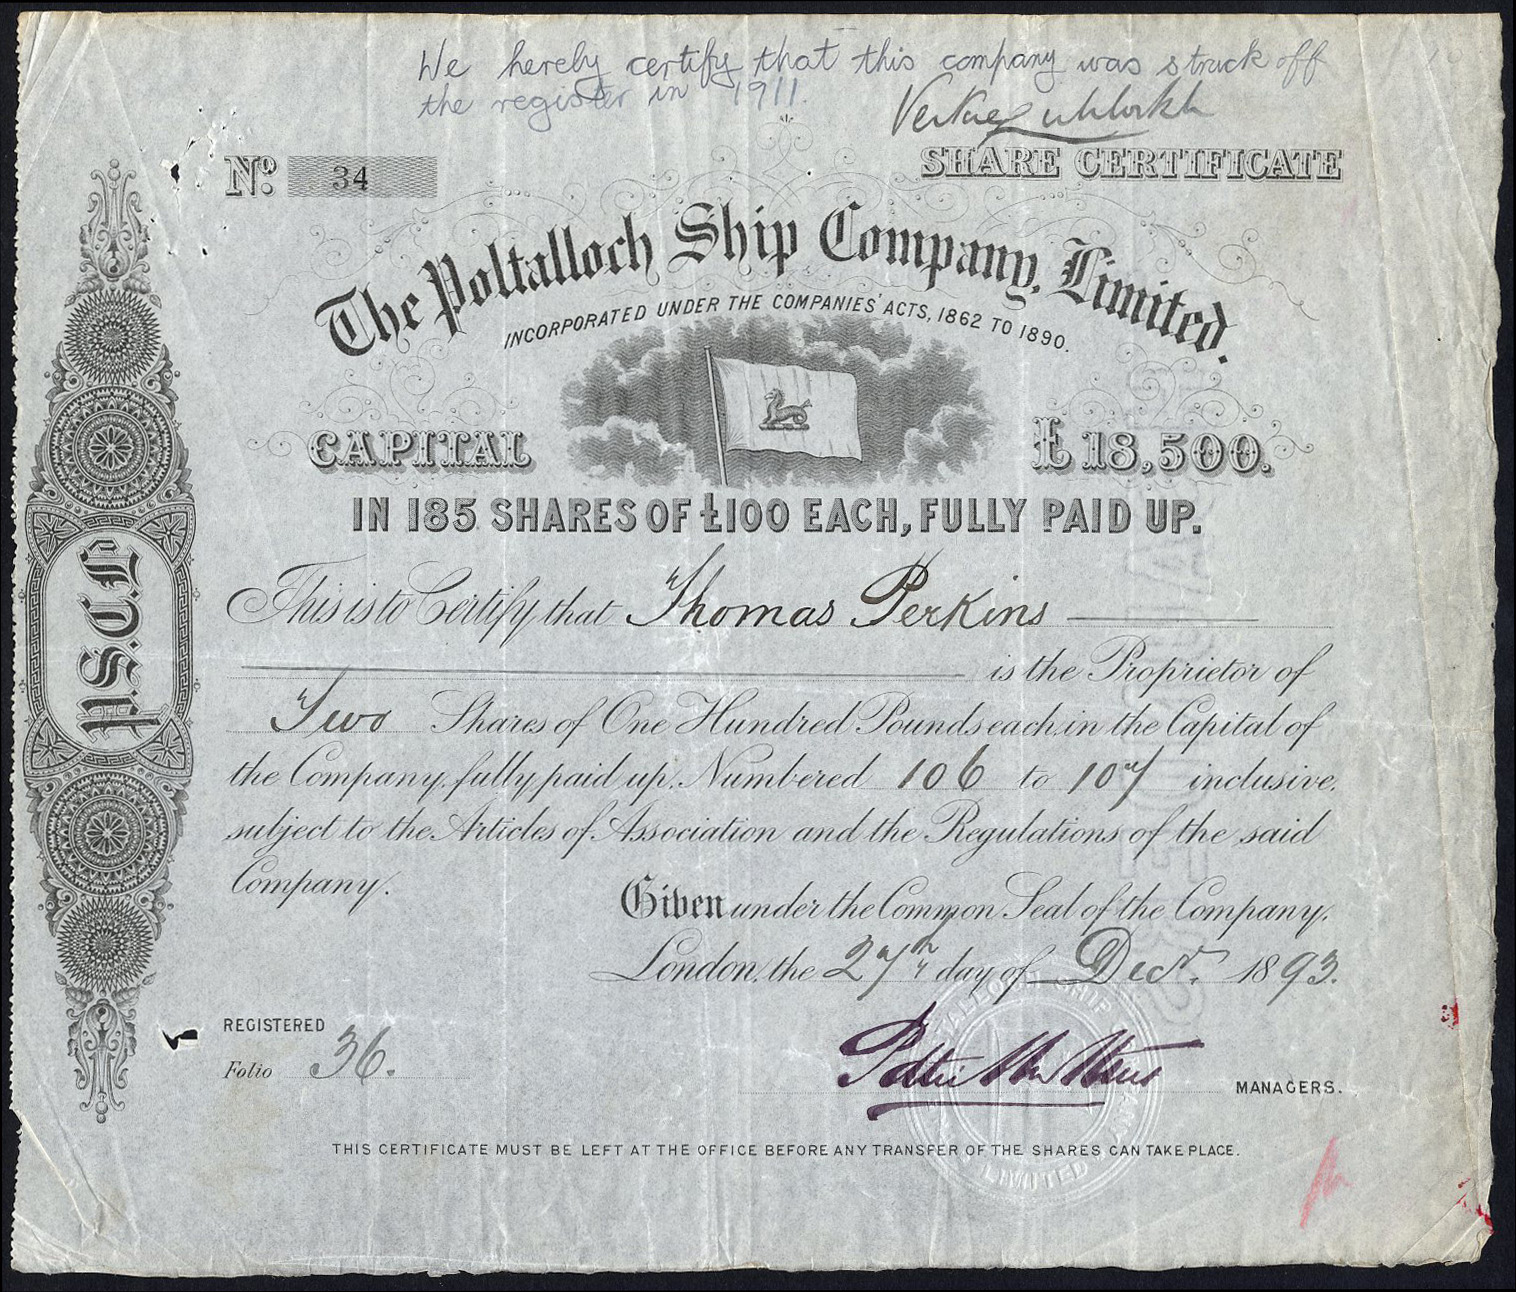 We hereby certify that this company was struck off
the register in 1911.
No. 34
SHARE CERTIFICATE
The Poltalloch Ship Company, Limited.
INCORPORATED UNDER THE COMPANIES' ACTS, 1862 TO 1890.
CAPITAL £18,500.
IN 185 SHARES OF £100 EACH, FULLY PAID UP.
P.S.C.L
This is to Certify that Thomas Perkins
is the Proprietor of
Two Shares of One Hundred Pounds each in the Capital of
the Company, fully paid up. Numbered 106 to 107 inclusive,
subject to the Articles of Association and the Regulations of the said
Company.
Given under the Common Seal of the Company,
London, the 27th day of Decr. 1893.
REGISTERED
Folio 36.
MANAGERS.
THIS CERTIFICATE MUST BE LEFT AT THE OFFICE BEFORE ANY TRANSFER OF THE SHARES CAN TAKE PLACE.
LIMITED